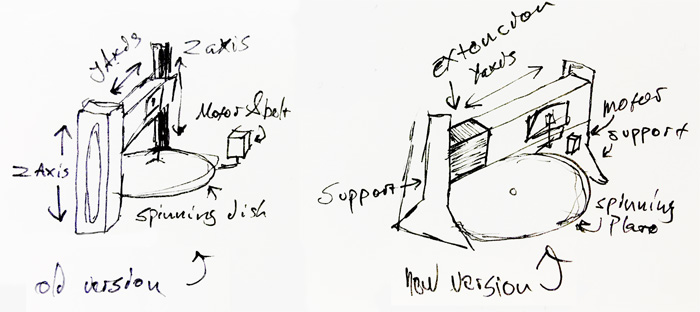 y Axis
Z axis
Motor & belt
Z Axis
spinning dish
old version
extencion
Y axis
moteer
support
Support
spinning
new version